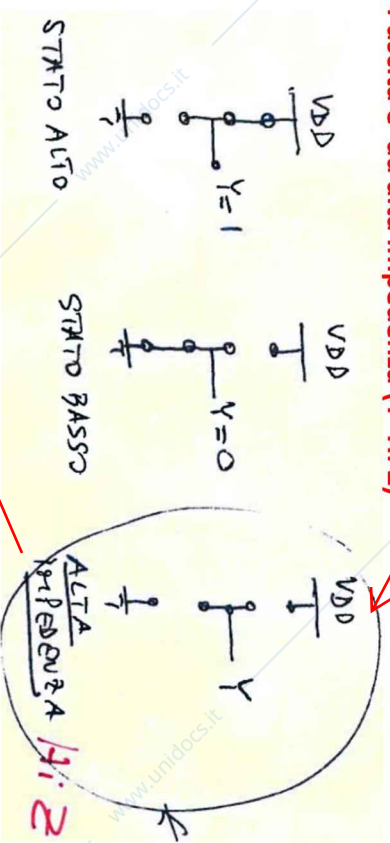 VDD
Y=1
STATO ALTO
VDD
Y=0
STATO BASSO
VDD
Y
ALTA
IMPEDENZA Hi Z
www.unidocs.it
www.unidocs.it